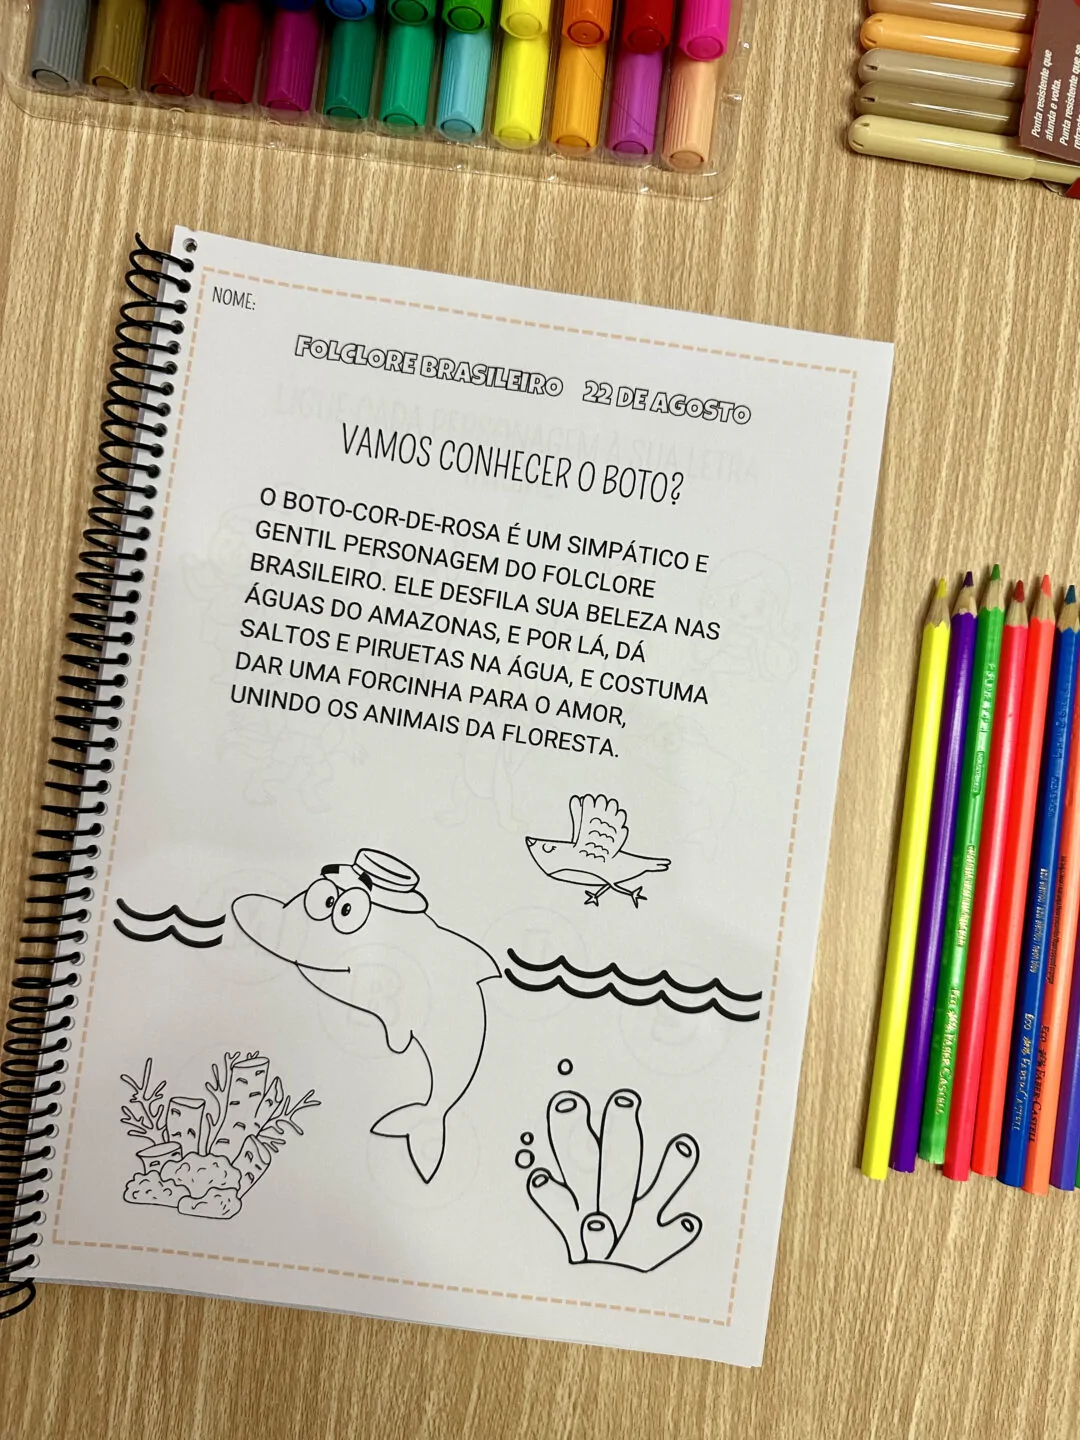 NOME:
FOLCLORE BRASILEIRO 22 DE AGOSTO
VAMOS CONHECER O BOTO?
O BOTO-COR-DE-ROSA É UM SIMPÁTICO E
GENTIL PERSONAGEM DO FOLCLORE
BRASILEIRO. ELE DESFILA SUA BELEZA NAS
ÁGUAS DO AMAZONAS, E POR LÁ, DÁ
SALTOS E PIRUETAS NA ÁGUA, E COSTUMA
DAR UMA FORCINHA PARA O AMOR,
UNINDO OS ANIMAIS DA FLORESTA.
Ponta resistente que
afunda e volta.
Punta resistente que se